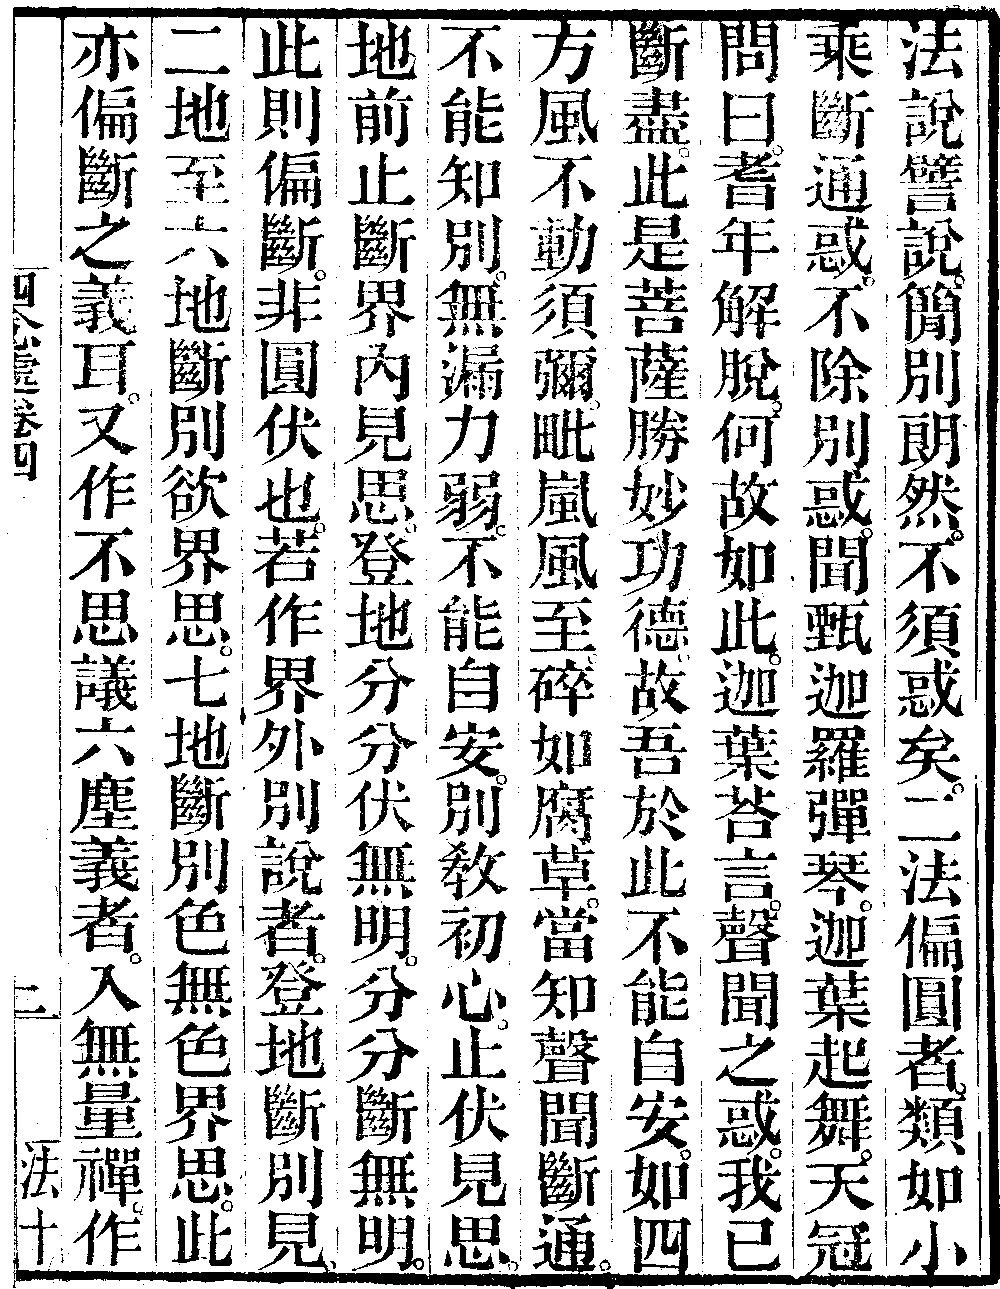 法說譬說。簡別朗然。不須惑矣。二法偏圓者。類如小
乘斷通惑。不除別惑。聞甄迦羅彈琴。迦葉起舞。天冠
問曰。耆年解脫。何故如此。迦葉荅言。聲聞之惑。我已
斷盡。此是菩薩勝妙功德。故吾於此不能自安。如四
方風不動須彌。毗嵐風至。碎如腐草。當知聲聞斷通。
不能知別。無漏力弱。不能自安。別教初心。止伏見思。
地前止斷界內見思。登地分分伏無明。分分斷無明。
此則偏斷。非圓伏也。若作界外別說者。登地斷別見、
二地至六地斷別欲界思。七地斷別色無色界思。此
亦偏斷之義耳。又作不思議六塵義者。入無量禪。作
四念處卷四
二
法十